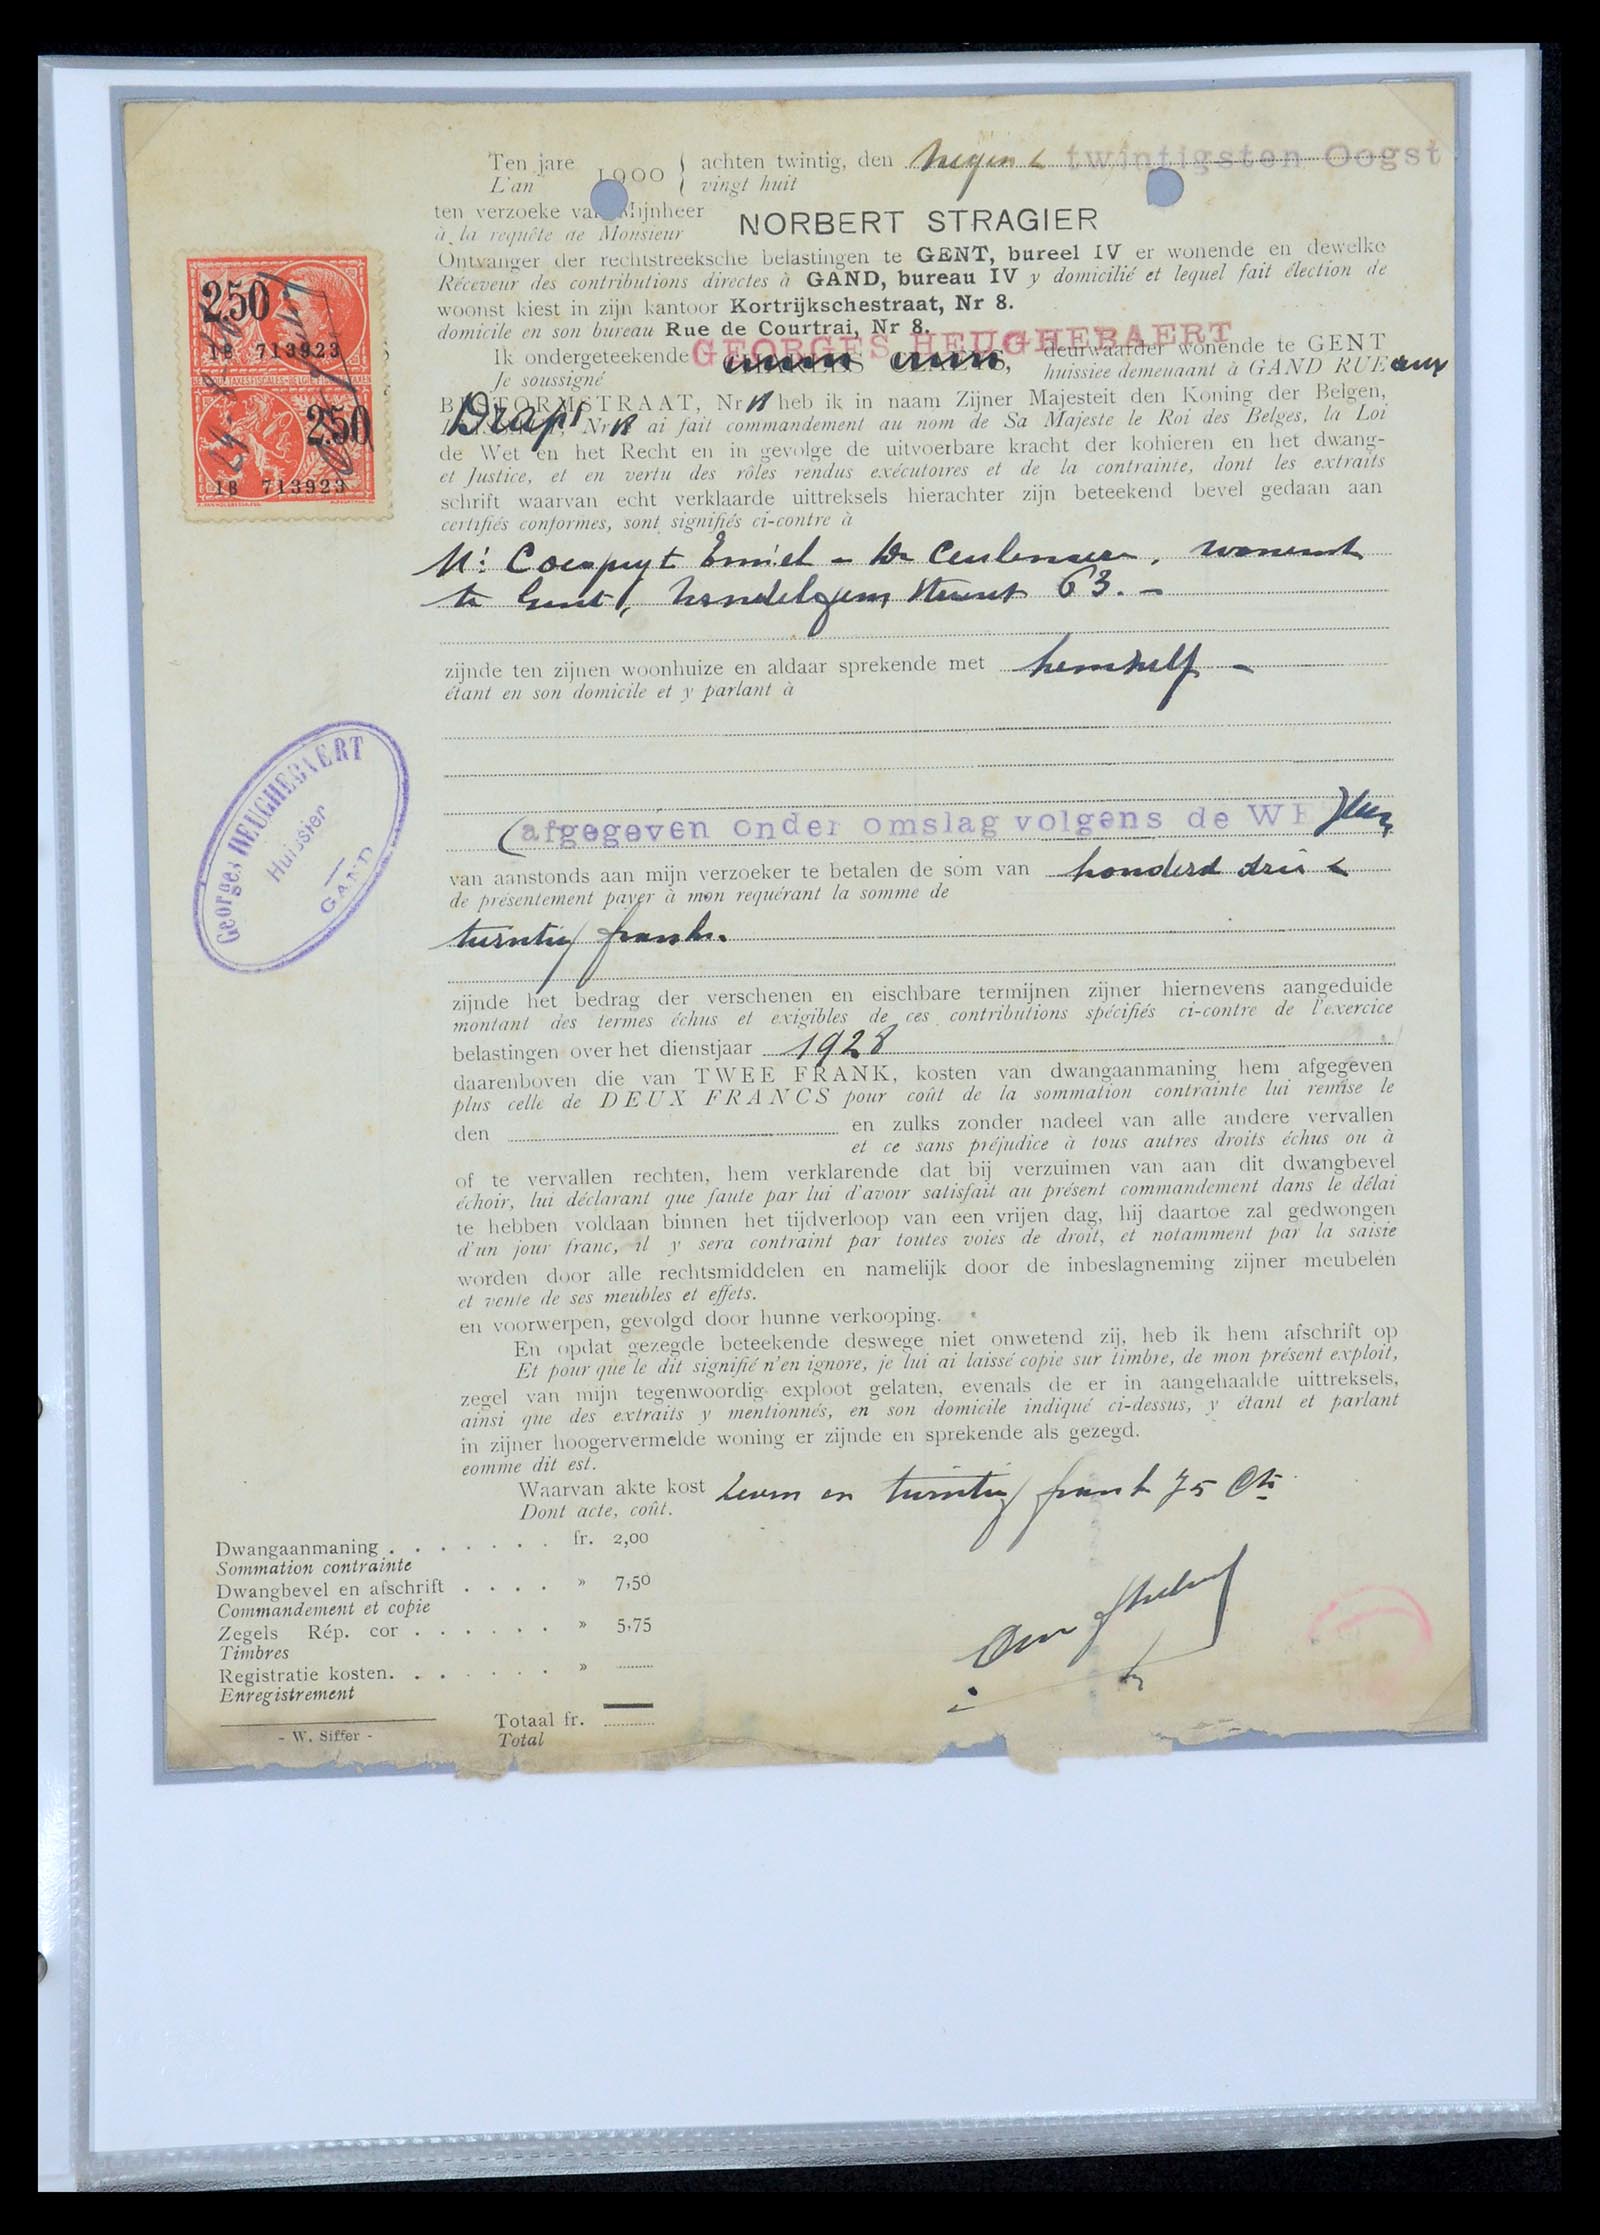 Ten jare 1900 achten twintig, den negen & twintigsten Oogst
L'an vingt huit
ten verzoeke van Mijnheer NORBERT STRAGIER
à la requête de Monsieur
Ontvanger der rechtstreeksche belastingen te GENT, bureel IV er wonende en dewelke
Réceveur des contributions directes à GAND, bureau IV y domicilié et lequel fait élection de
woonst kiest in zijn kantoor Kortrijkschestraat, Nr 8.
domicile en son bureau Rue de Courtrai, Nr 8.
Ik ondergeteekende GEORGES HEUGHEBAERT deurwaarder wonende te GENT
Je soussigné huissiee demeuaant à GAND RUE aux
STRAAT, Nr 18 heb ik in naam Zijner Majesteit den Koning der Belgen,
Draps Nr 18 ai fait commandement au nom de Sa Majeste le Roi des Belges, la Loi
de Wet en het Recht en in gevolge de uitvoerbare kracht der kohieren en het dwang-
et Justice, et en vertu des rôles rendus exécutoires et de la contrainte, dont les extraits
schrift waarvan echt verklaarde uittreksels hierachter zijn beteekend bevel gedaan aan
certifiés conformes, sont signifiés ci-contre à
Emiel - De Ceuleneer, wonende
te Gent, straat 63. -
zijnde ten zijnen woonhuize en aldaar sprekende met hemzelf -
étant en son domicile et y parlant à
(afgegeven onder omslag volgens de WE
van aanstonds aan mijn verzoeker te betalen de som van honderd drie &
de présentement payer à mon requérant la somme de
twintig franks.
zijnde het bedrag der verschenen en eischbare termijnen zijner hiernevens aangeduide
montant des termes échus et exigibles de ces contributions spécifiés ci-contre de l'exercice
belastingen over het dienstjaar 1928
daarenboven die van TWEE FRANK, kosten van dwangaanmaning hem afgegeven
plus celle de DEUX FRANCS pour coût de la sommation contrainte lui remise le
den en zulks zonder nadeel van alle andere vervallen
et ce sans préjudice à tous autres droits échus ou à
of te vervallen rechten, hem verklarende dat bij verzuimen van aan dit dwangbevel
échoir, lui déclarant que faute par lui d'avoir satisfait au présent commandement dans le délai
te hebben voldaan binnen het tijdverloop van een vrijen dag, hij daartoe zal gedwongen
d'un jour franc, il y sera contraint par toutes voies de droit, et notamment par la saisie
worden door alle rechtsmiddelen en namelijk door de inbeslagneming zijner meubelen
et vente de ses meubles et effets.
en voorwerpen, gevolgd door hunne verkooping.
En opdat gezegde beteekende deswege niet onwetend zij, heb ik hem afschrift op
Et pour que le dit signifié n'en ignore, je lui ai laissé copie sur timbre, de mon présent exploit,
zegel van mijn tegenwoordig exploot gelaten, evenals de er in aangehaalde uittreksels,
ainsi que des extraits y mentionnés, en son domicile indiqué ci-dessus, y étant et parlant
in zijner hoogervermelde woning er zijnde en sprekende als gezegd.
comme dit est.
Waarvan akte kost zeven en twintig frank 75 Cts
Dont acte, coût.
Dwangaanmaning . . . . . . . fr. 2,00
Sommation contrainte
Dwangbevel en afschrift . . . . » 7,50
Commandement et copie
Zegels Rép. cor . . . . . . » 5,75
Timbres
Registratie kosten. . . . . . . »
Enregistrement
Totaal fr.
Total
- W. Siffer -
2.50
1B 713923
2.50
1B 713923
Georges HEUGHEBAERT
Huissier
GAND